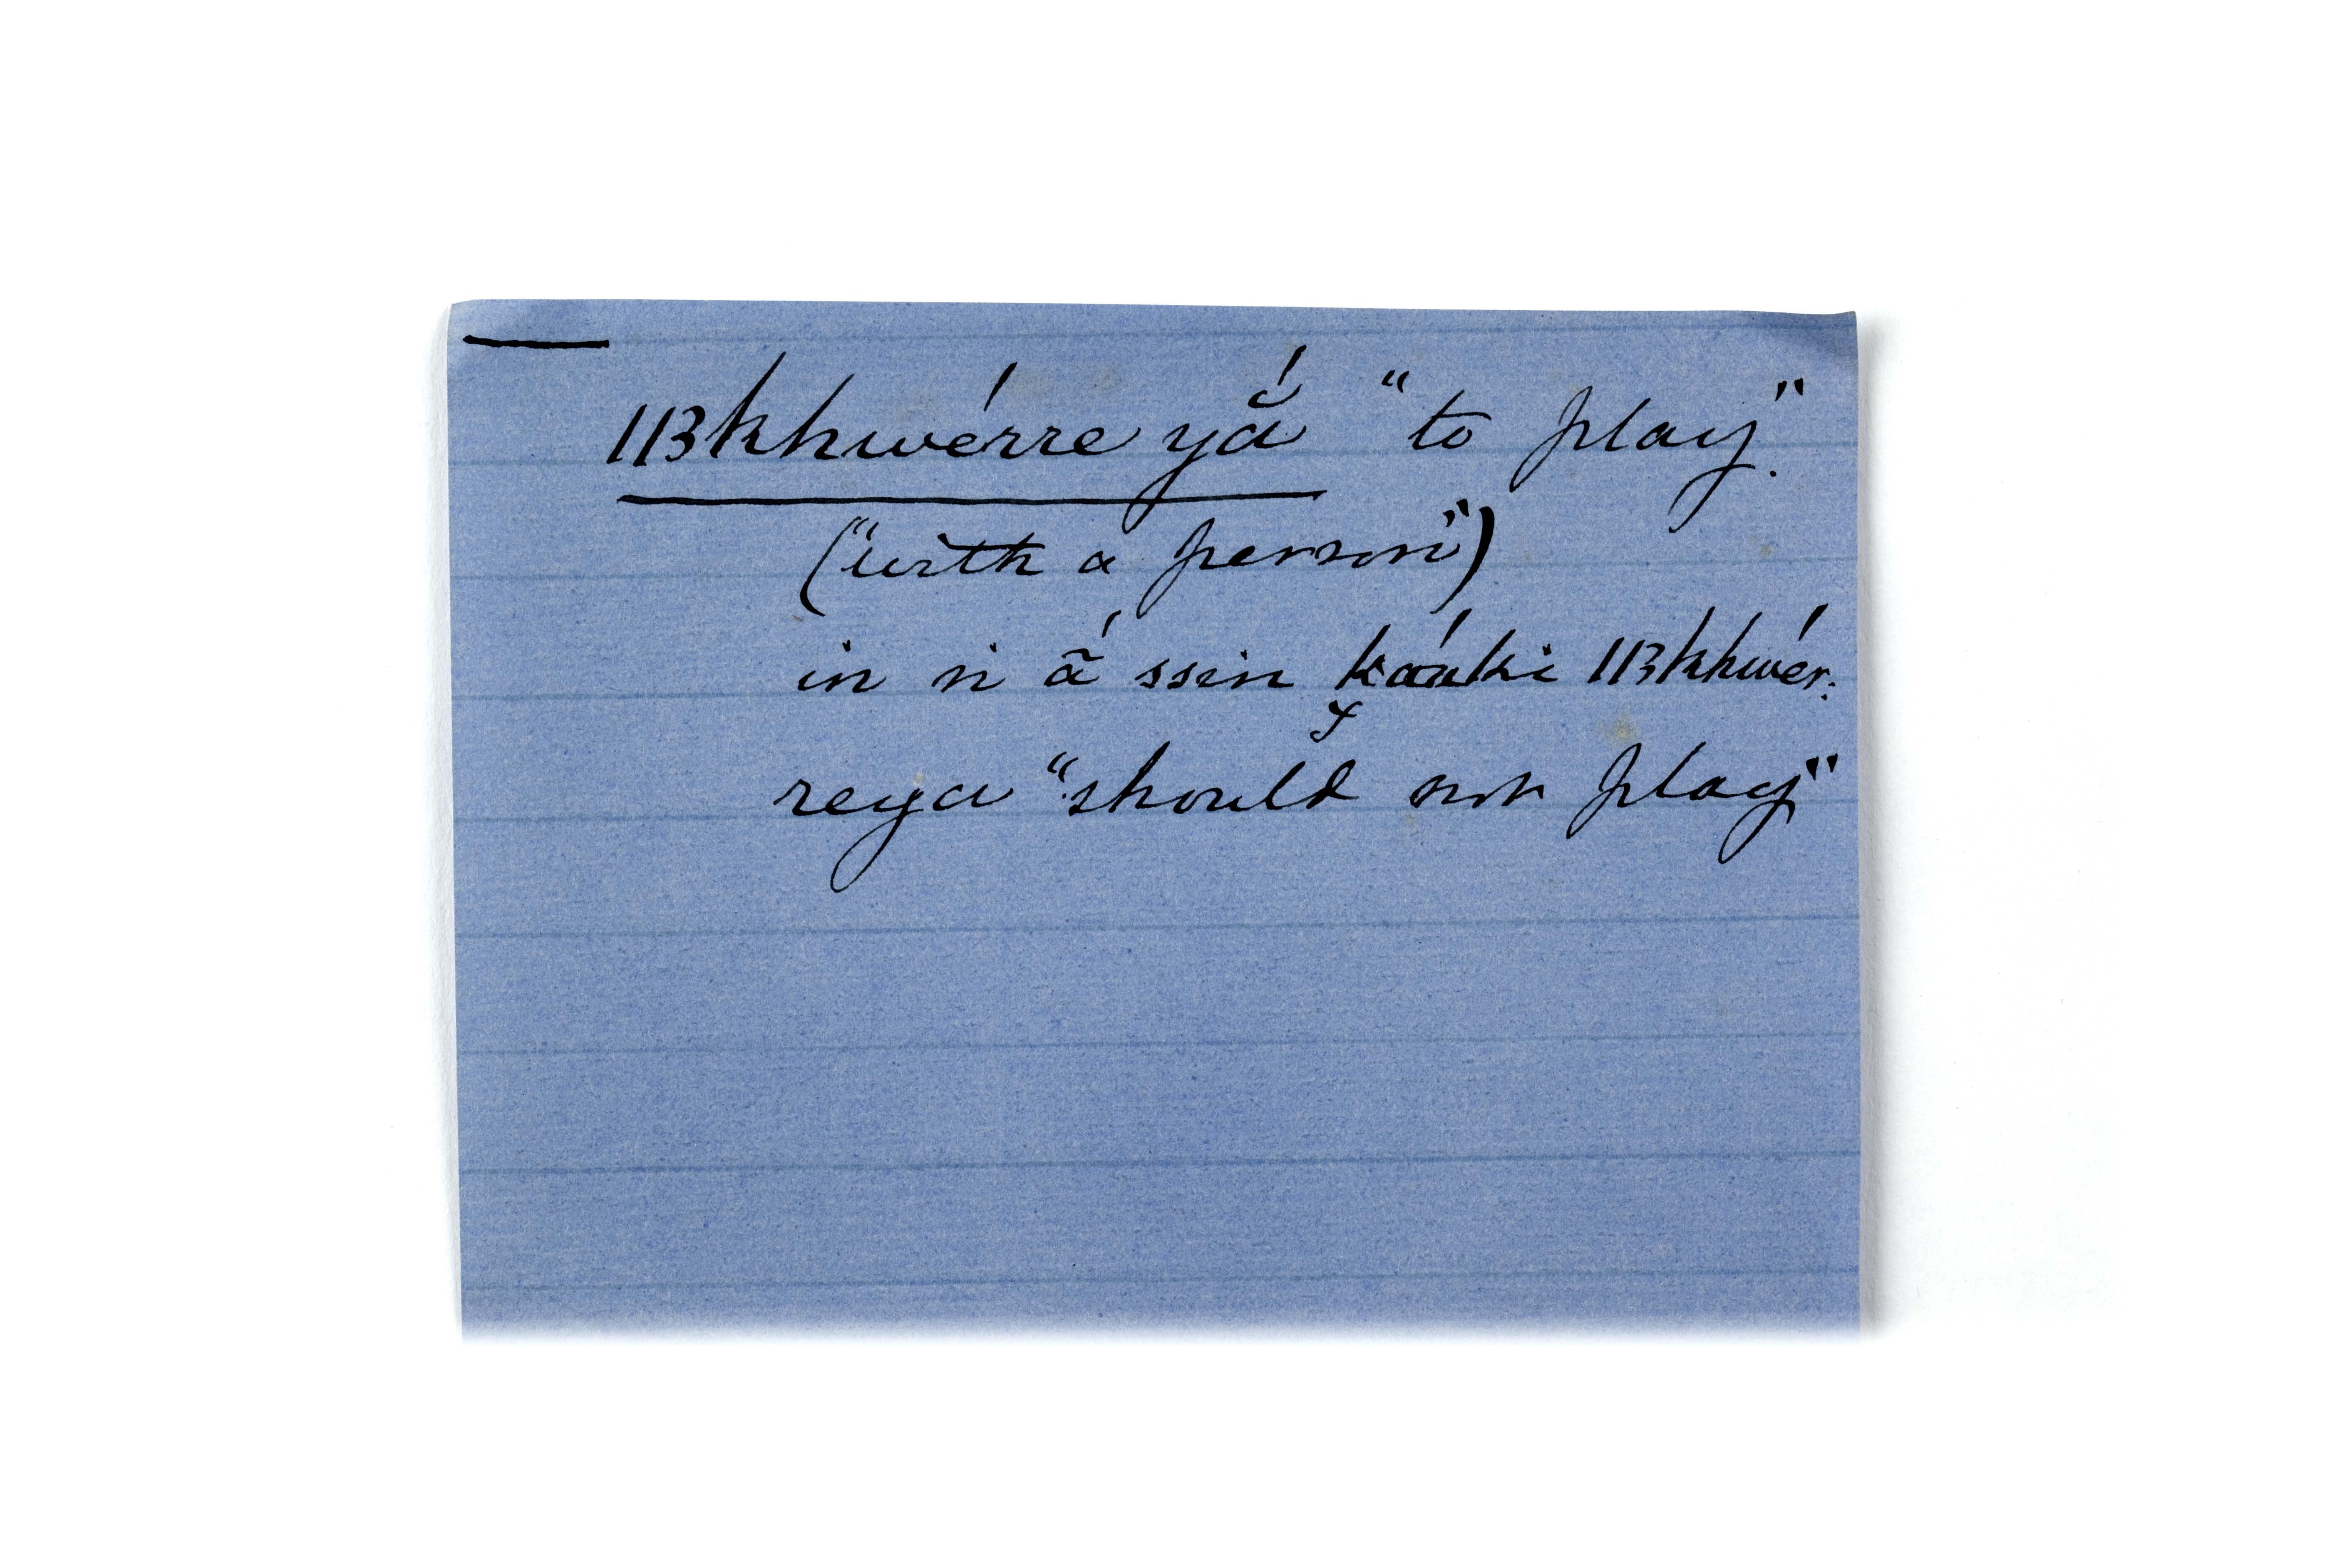 113khwérre yắ "to play".
("with a person")
in n ã́ ssin káaki 113khwér:
reya "should not play"